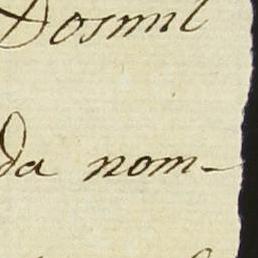 Dosmil
da nom-